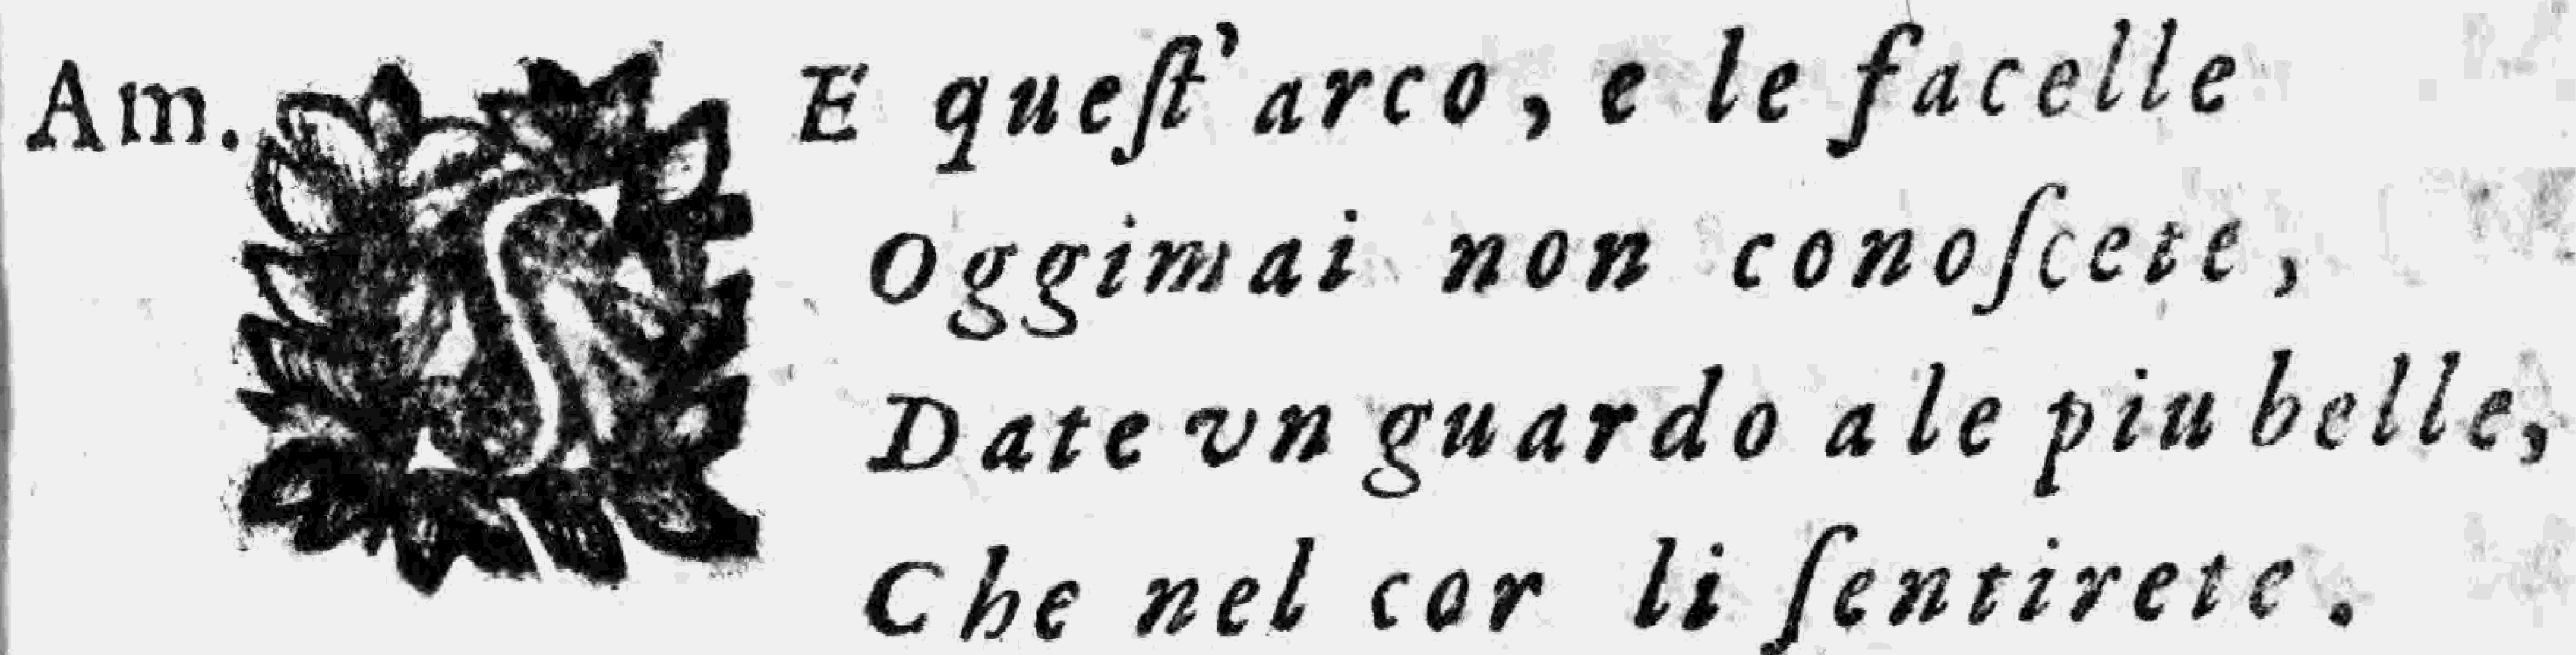 Am. SE queſt' arco, e le facelle
Oggimai non conoſcete,
Date vn guardo a le piu belle,
Che nel cor li ſentirete.